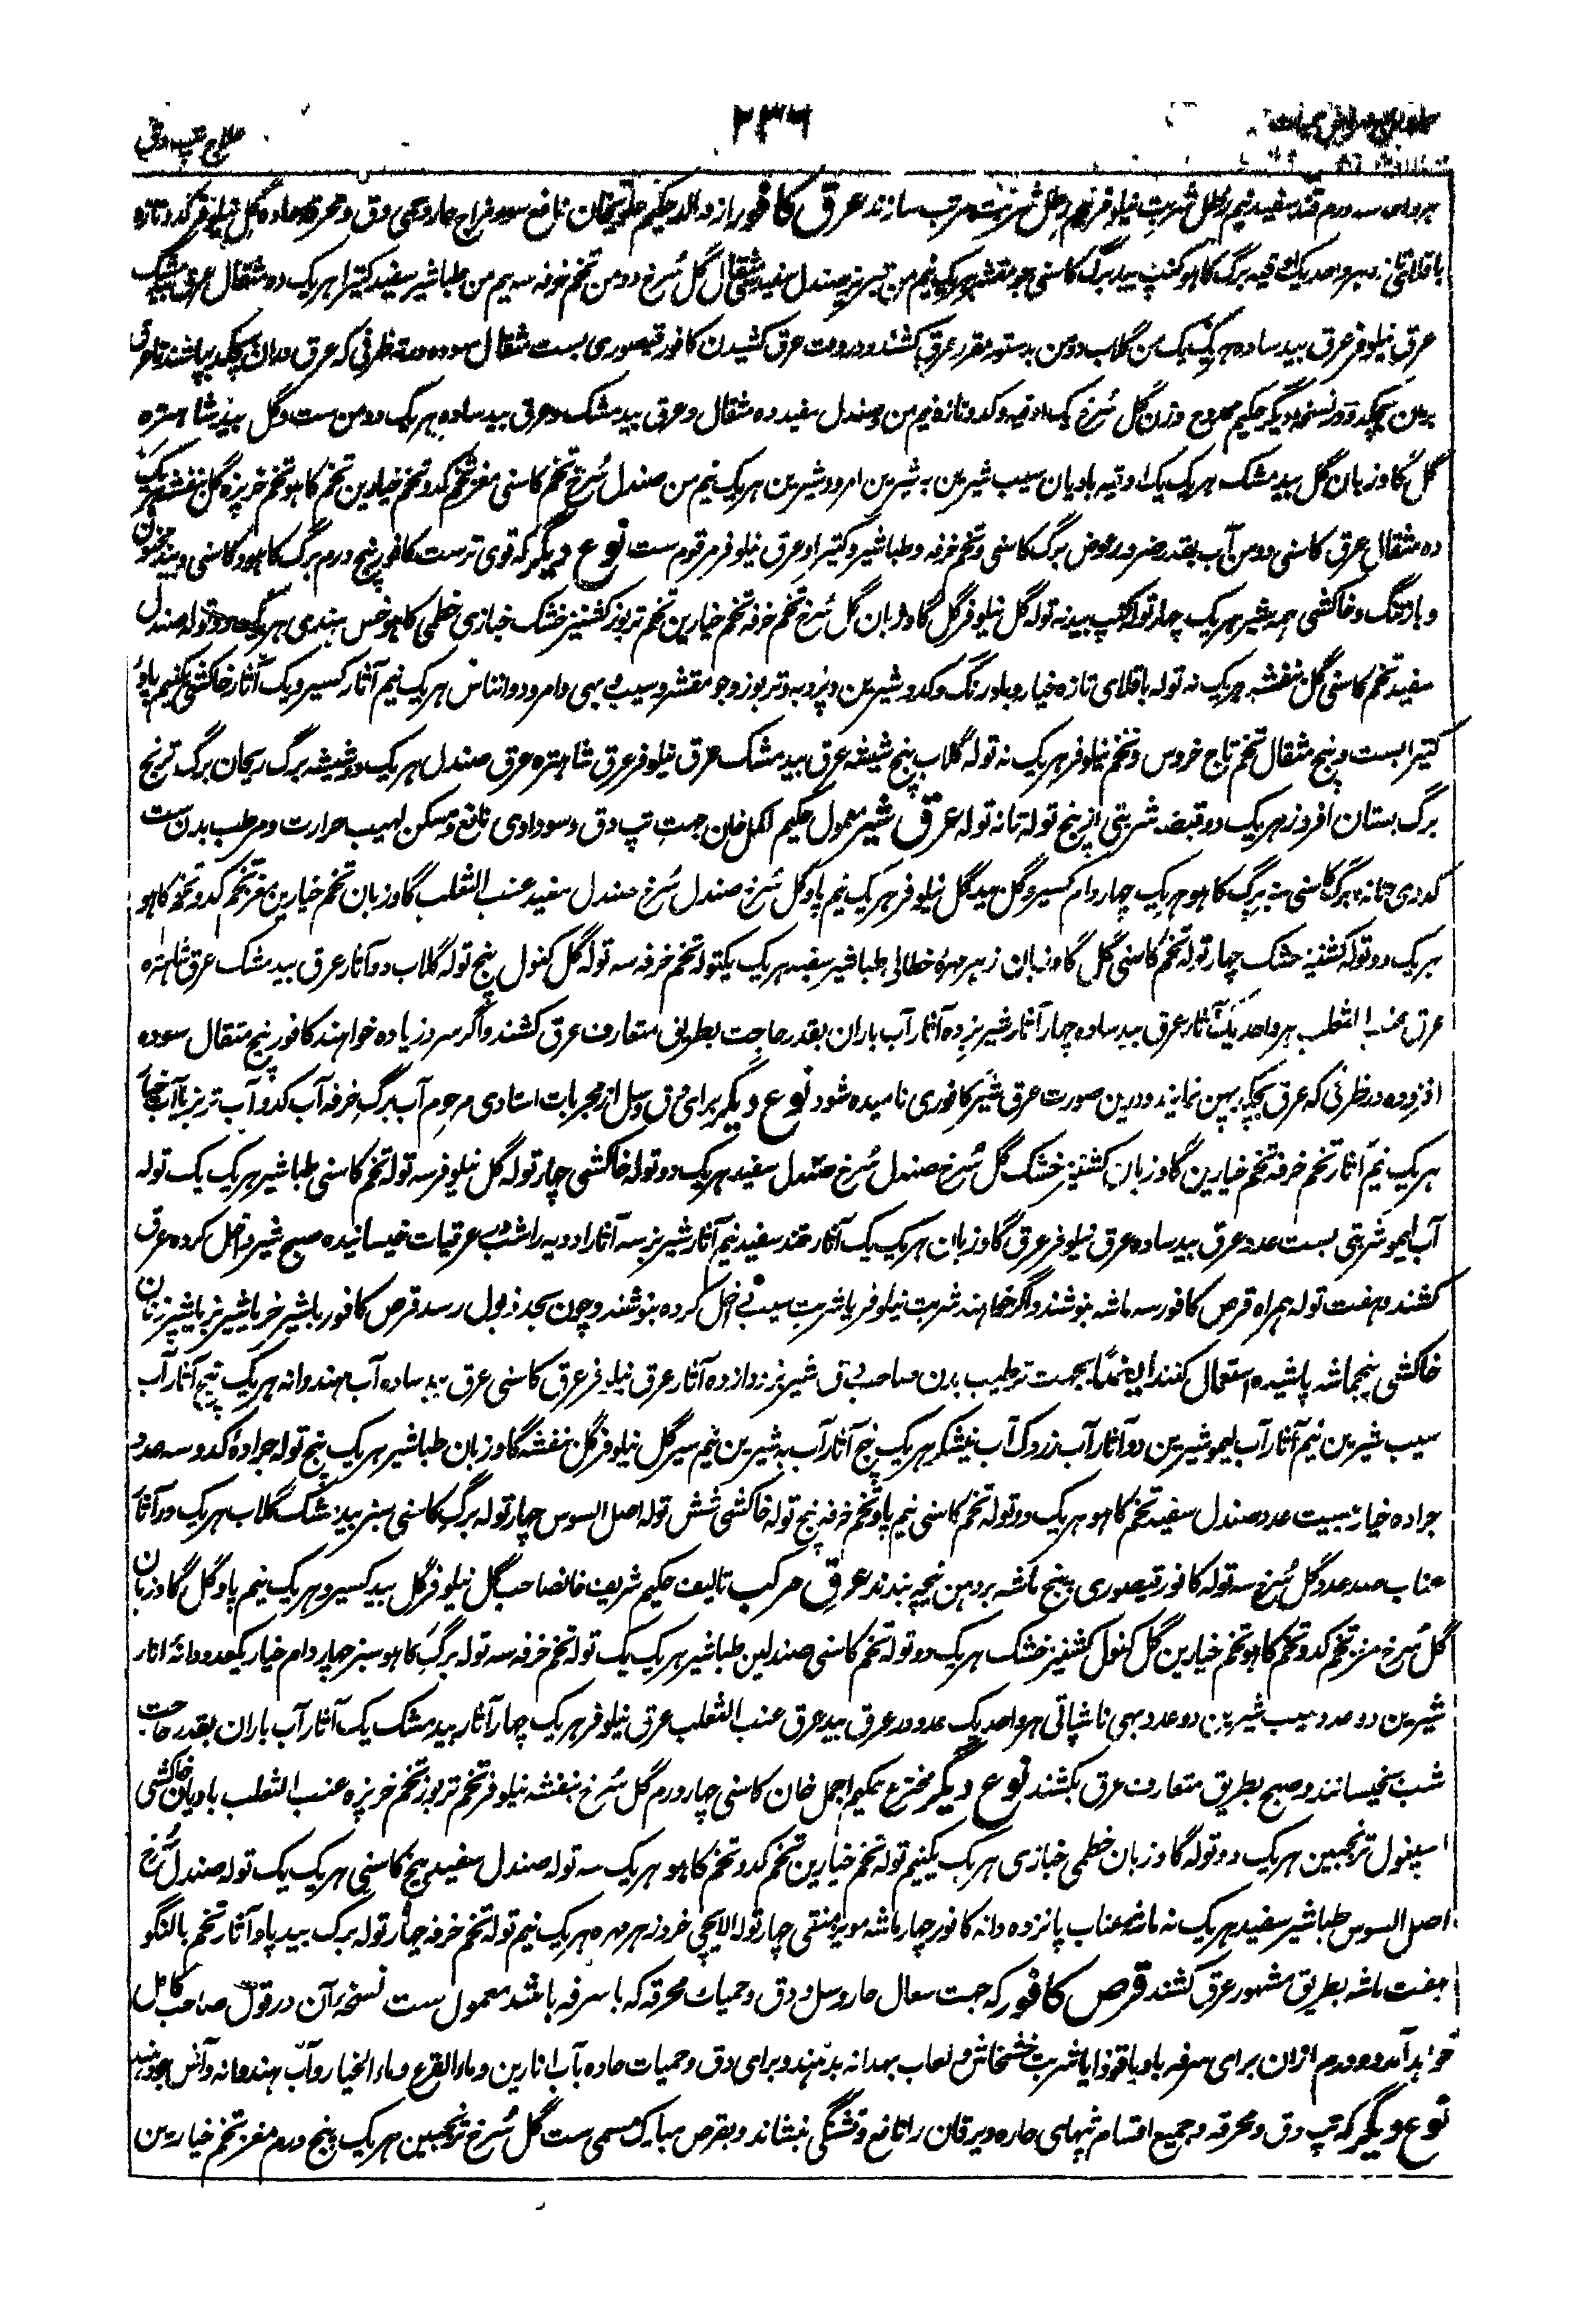 علاج تپ دق
۲۳۶
هرواحد سه درم قند سفید نیم رطل شربت نیلوفر نیم رطل مرتب سازند عرق کافور از والد حکیم علویخان نافع سوء مزاج حار و تپ دق و محرقه حاده گل نیلوفر کدو تازه
هر واحد یک وقیه برگ کاهو کنب بید برگ کاسنی جو مقشر هریک نیم من تبریز صندل سفید مثقال گل سرخ دو من تخم خرفه سه نیم من طباشیر سفید کتیرا هریک ده مثقال عرق بیدمشک
عرق نیلوفر عرق بید ساده هریک یک من گلاب دو من بدستور مقرر عرق کشند و در وقت عرق کشیدن کافور قیصوری بست مثقال سوده در ظرفی که عرق دران چکد بپاشند تا عرق
برین بچکد و در نسخه دیگر حکیم ممدوح وزن گل سرخ یک اوقیه و کدو تازه نیم من و صندل سفید ده مثقال و عرق بید مشک و عرق بید ساده هریک دو من ست و گل بید شاهتره
گل گاوزبان گل بید مشک هریک یک اوقیه بادیان سیب شیرین به شیرین امرود شیرین هریک نیم من صندل سرخ تخم کاسنی مغز تخم کدو تخم خیارین تخم کاهو تخم خرپزه گل بنفشه هریک
ده مثقال عرق کاسنی دو من آب بقدر ضرور عوض برگ کاسنی و تخم خرفه و طباشیر و کتیرا و عرق نیلوفر مرقوم ست نوع دیگر که قوی ترست کافور پنج درم برگ کاهو و کاسنی و بید
و بارتنگ و خاکشی هریک چهار توله کنب بید نه توله گل نیلوفر گل گاوزبان گل سرخ تخم خرفه تخم خیارین تخم تربوز کشنیز خشک خبازی خطمی کاهو خس هندی هریک دو توله صندل
سفید تخم کاسنی گل بنفشه هریک نه توله باقلای تازه خیار و بادرنگ و کدو شیرین و تربوز و جو مقشر و سیب و بهی و امرود و انناس هریک نیم آثار کسیرو یک آثار خاکشی یکنیم پاو
کتیرا بست و پنج مثقال تخم تاج خروس و تخم نیلوفر هریک نه توله گلاب پنج شیشه عرق بید مشک عرق نیلوفر عرق شاهتره عرق صندل هریک دو شیشه برگ ریحان برگ ترنج
برگ بستان افروز هریک دو قبضه شربتی از پنج توله تا نه توله عرق شیر معمول حکیم اکمل خان جهت تپ دق و سوداوی نافع و مسکن لهیب حرارت و مرطب بدن ست
کدوی تازه برگ کاسنی سبز برگ کاهو هریک چهار دام کسیرو گل بید گل نیلوفر هریک نیم پاو گل سرخ صندل سرخ صندل سفید عنب الثعلب گاوزبان تخم خیارین مغز تخم کدو تخم کاهو
هریک دو توله کشنیز خشک چهار توله تخم کاسنی گل گاوزبان زهر مهره خطائی طباشیر سفید هریک یکتوله تخم خرفه سه توله گل کنول پنج توله گلاب دو آثار عرق بید مشک عرق شاهتره
عرق عنب الثعلب هر واحد یک آثار عرق بید ساده چهار آثار شیر بز ده آثار آب باران بقدر حاجت بطریق متعارف عرق کشند و اگر سرد زیاده خواهند کافور پنج مثقال سوده
افزوده در ظرفی که عرق بچکد پهن نمایند و درین صورت عرق شیر کافوری نامیده شود نوع دیگر برای دق و سل از مجربات استادی مرحوم آب برگ خرفه آب کدو آب تربز آب خیار
هریک نیم آثار تخم خرفه تخم خیارین گاوزبان کشنیز خشک گل سرخ صندل سرخ صندل سفید هریک دو توله خاکشی چهار توله گل نیلوفر سه توله تخم کاسنی طباشیر هریک یک توله
آب لیمو شربتی بست عدد عرق بید ساده عرق نیلوفر عرق گاوزبان هریک یک آثار قند سفید نیم آثار شیر بز سه آثار ادویه را شب در عرقیات خیسانیده صبح شیر داخل کرده عرق
کشند و هفت توله همراه قرص کافور سه ماشه بنوشند و اگر خواهند شربت نیلوفر یا شربت سیب داخل کرده بنوشند و چون بحد ذبول رسد قرص کافور با شیر خر یا شیر بز یا شیر زنان
خاکشی پنجماشه پاشیده استعمال کنند ایضا بجهت ترطیب بدن صاحب دق شیر بز دوازده آثار عرق نیلوفر عرق کاسنی عرق بید ساده آب هندوانه هریک پنج آثار آب
سیب شیرین نیم آثار آب لیمو شیرین دو آثار آب زردک آب نیشکر هریک پنج آثار آب به شیرین نیم سیر گل نیلوفر گل بنفشه گاوزبان طباشیر هریک پنج توله جراده کدو سه عدد
جراده خیار بیست عدد صندل سفید تخم کاهو هریک دو توله تخم کاسنی نیم پاو تخم خرفه پنج توله خاکشی شش توله اصل السوس چهار توله برگ کاسنی سبز بید مشک گلاب هریک دو آثار
عناب صد عدد گل سرخ سه توله کافور قیصوری پنج ماشه بر دهن نیچه بندند عرق مرکب تالیف حکیم شریف خانصاحب گل نیلوفر گل بید کسیرو هریک نیم پاو گل گاوزبان
گل سرخ مغز تخم کدو تخم کاهو تخم خیارین گل کنول کشنیز خشک هریک دو توله تخم کاسنی صندلین طباشیر هریک یک توله تخم خرفه سه توله برگ کاهو سبز چهار دام خیار یکعدد دانه انار
شیرین دو عدد سیب شیرین دو عدد بهی ناشپاتی هر واحد یک عدد عرق بید عرق عنب الثعلب عرق نیلوفر هریک چهار آثار بید مشک یک آثار آب باران بقدر حاجت
شب بخیسانند و صبح بطریق متعارف عرق بکشند نوع دیگر مخترع حکیم اجمل خان کاسنی چهار درم گل سرخ بنفشه نیلوفر تخم تربوز تخم خرپزه عنب الثعلب بادیان خاکشی
اسپغول ترنجبین هریک دو توله گاوزبان خطمی خبازی هریک یکنیم توله تخم خیارین تخم کدو تخم کاهو هریک سه توله صندل سفید بیخ کاسنی هریک یک توله صندل سرخ
اصل السوس طباشیر سفید هریک نه ماشه عناب پانزده دانه کافور چهار ماشه مویز منقی چهار توله الایچی خرد زهر مهره هریک نیم توله تخم خرفه چهار توله برگ بید پاو آثار تخم بالنگو
هفت ماشه بطریق مشهور عرق کشند قرص کافور که جهت سعال حار و سل و دق و حمیات محرقه که با سرفه باشد معمول ست نسخه آن در قول صاحب کامل
خواهد آمد دو درم ازان برای سرفه با دیاقوذا یا شربت خشخاش و لعاب بهدانه بدهند و برای دق و حمیات حاده بآب انارین و ماء القرع و ماء الخیار و آب هندوانه و آش جو دهند
نوع دیگر که تپ دق و محرقه و جمیع اقسام تپهای حاره و یرقان را نافع و تشنگی بنشاند و بقرص مبارک مسمی ست گل سرخ ترنجبین هریک پنج درم مغز تخم خیارین